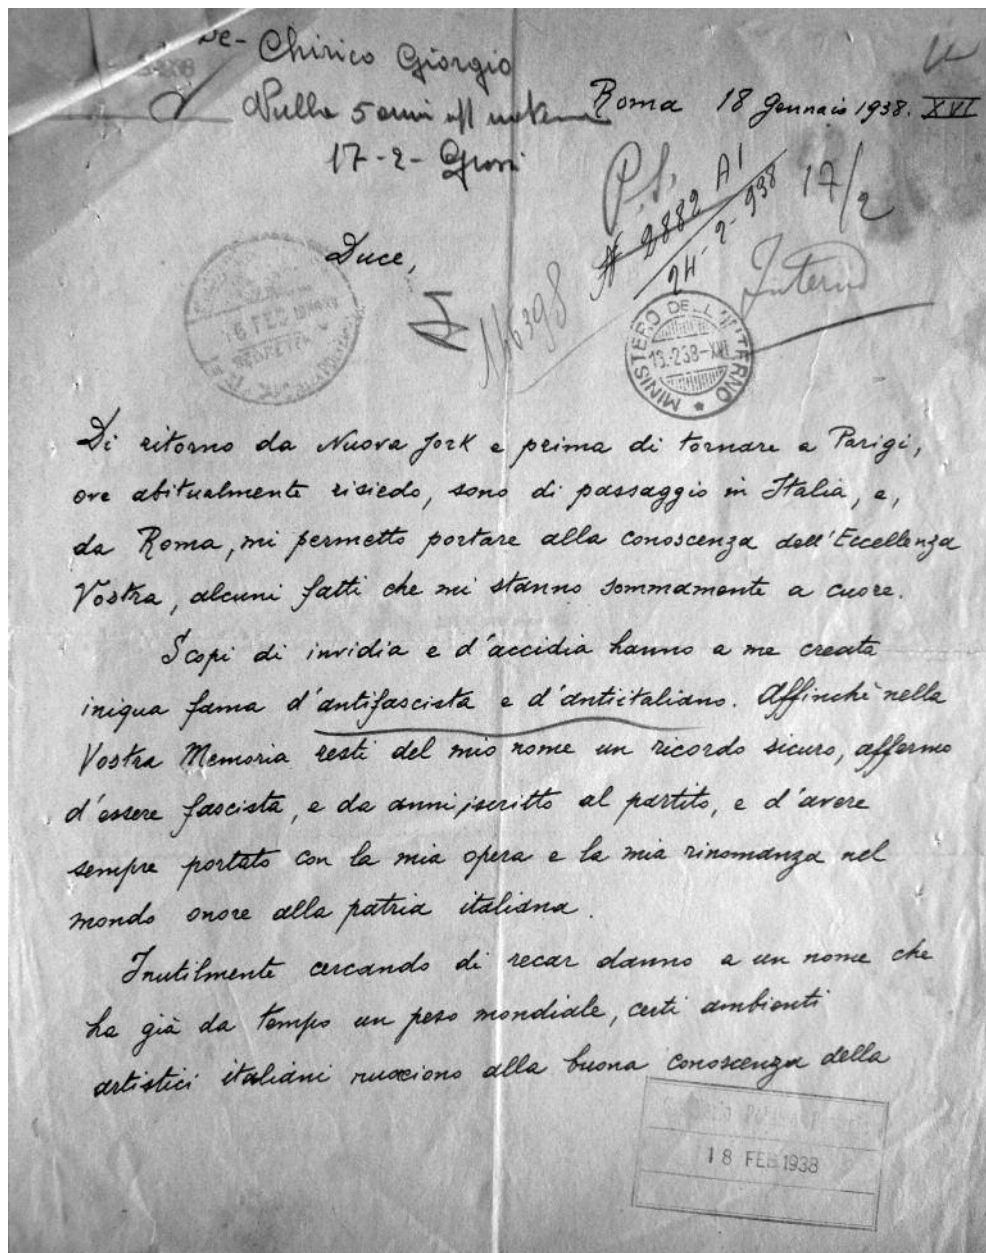 De-Chirico Giorgio
Nulla 5 anni
17-2-
Roma 18 Gennaio 1938. XVI
P.S.
N 2882 A1
24-2-938
17/2
Interno
Duce,
146398
6 FEB
MINISTERO DELL'INTERNO
16.2.38-XVI
Di ritorno da Nuova Jork e prima di tornare a Parigi,
ove abitualmente risiedo, sono di passaggio in Italia, e,
da Roma, mi permetto portare alla conoscenza dell'Eccellenza
Vostra, alcuni fatti che mi stanno sommamente a cuore.
Scopi di invidia e d'accidia hanno a me creata
iniqua fama d'antifascista e d'antiitaliano. Affinchè nella
Vostra Memoria resti del mio nome un ricordo sicuro, affermo
d'essere fascista, e da anni, iscritto al partito, e d'avere
sempre portato con la mia opera e la mia rinomanza nel
mondo onore alla patria italiana.
Inutilmente cercando di recar danno a un nome che
ha già da tempo un peso mondiale, certi ambienti
artistici italiani nuociono alla buona conoscenza della
18 FEB 1938